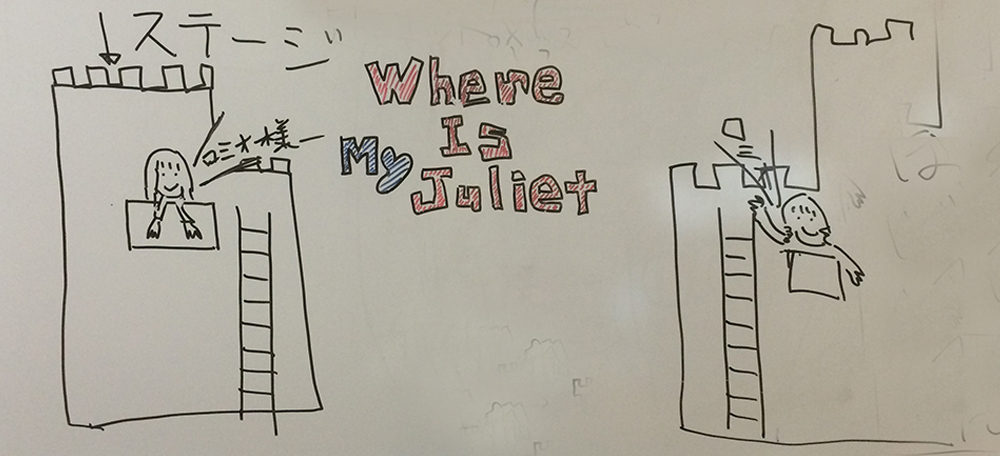 ↓ステージ
ロミオ様ー
Where
Is
My
Juliet